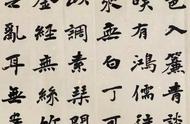 入簾青談
咲有鴻儒往
來無白丁可
以調素琴閱
金經無絲竹
亂耳無案